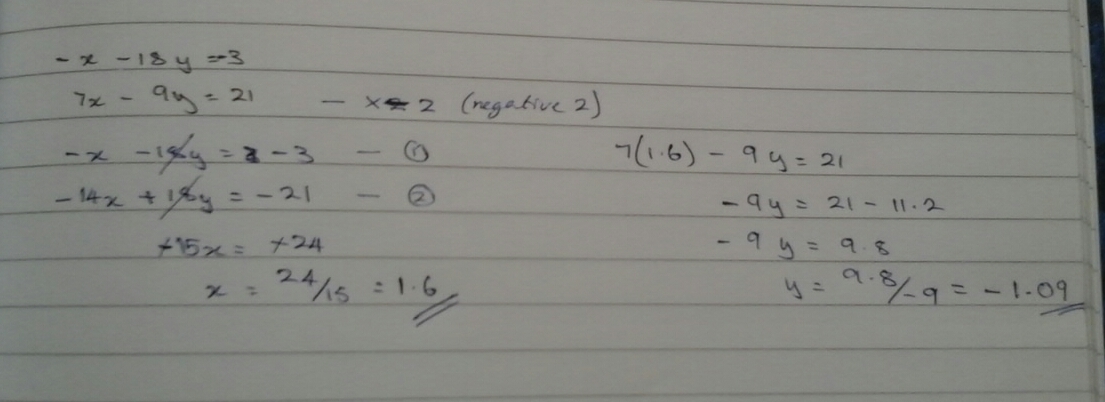 -x -18y =-3
7x - 9y = 21 — x 2 (negative 2)
-x -18y = -3 — ①
-14x +18y = -21 — ②
+15x = +24
x = 24/15 = 1.6
7(1.6) - 9y = 21
-9y = 21 - 11.2
-9y = 9.8
y = 9.8/-9 = -1.09